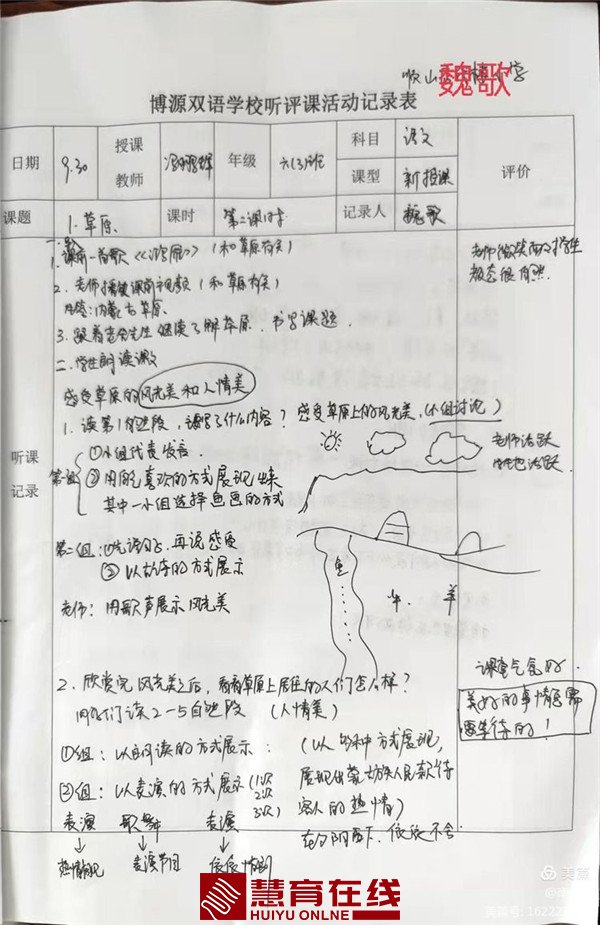 顺山 小学
魏歌
博源双语学校听评课活动记录表
日期 9.30 授课教师 年级 六(3)班 科目 语文 评价
课型 新授课
课题 1.草原 课时 第二课时 记录人 魏歌
听课记录
1.课前一首歌《鸿雁》(和草原有关)
2.老师播放课前视频(和草原有关)
内蒙古草原
3.跟着老舍先生继续了解草原．书写课题．
二、学生朗读课文
感受草原的风光美和人情美
1.读第1自然段，读写了什么内容？感受草原上的风光美，(小组讨论)
第一组
①小组代表发言．
②用自己喜欢的方式展现出来
其中一小组选择画画的方式
第二组：①先读句子．再说感受
②以 的方式展示
老师：用歌声展示风光美
羊
2．欣赏完风光美之后，看看草原上居住的人们怎么样？
同学们读2—5自然段 (人情美)
①组：以朗读的方式展示：
②组：以表演的方式展示
(1次
2次
3次)
(以各种方式展现，
展现出蒙古族人民款待
客人的热情)
在夕阳西下．依依不舍
表演 表演
表演节目
老师活跃
学生也活跃．
课堂气氛好．
美好的事情是需
要等待的！
慧育在线
HUIYU ONLINE
美篇